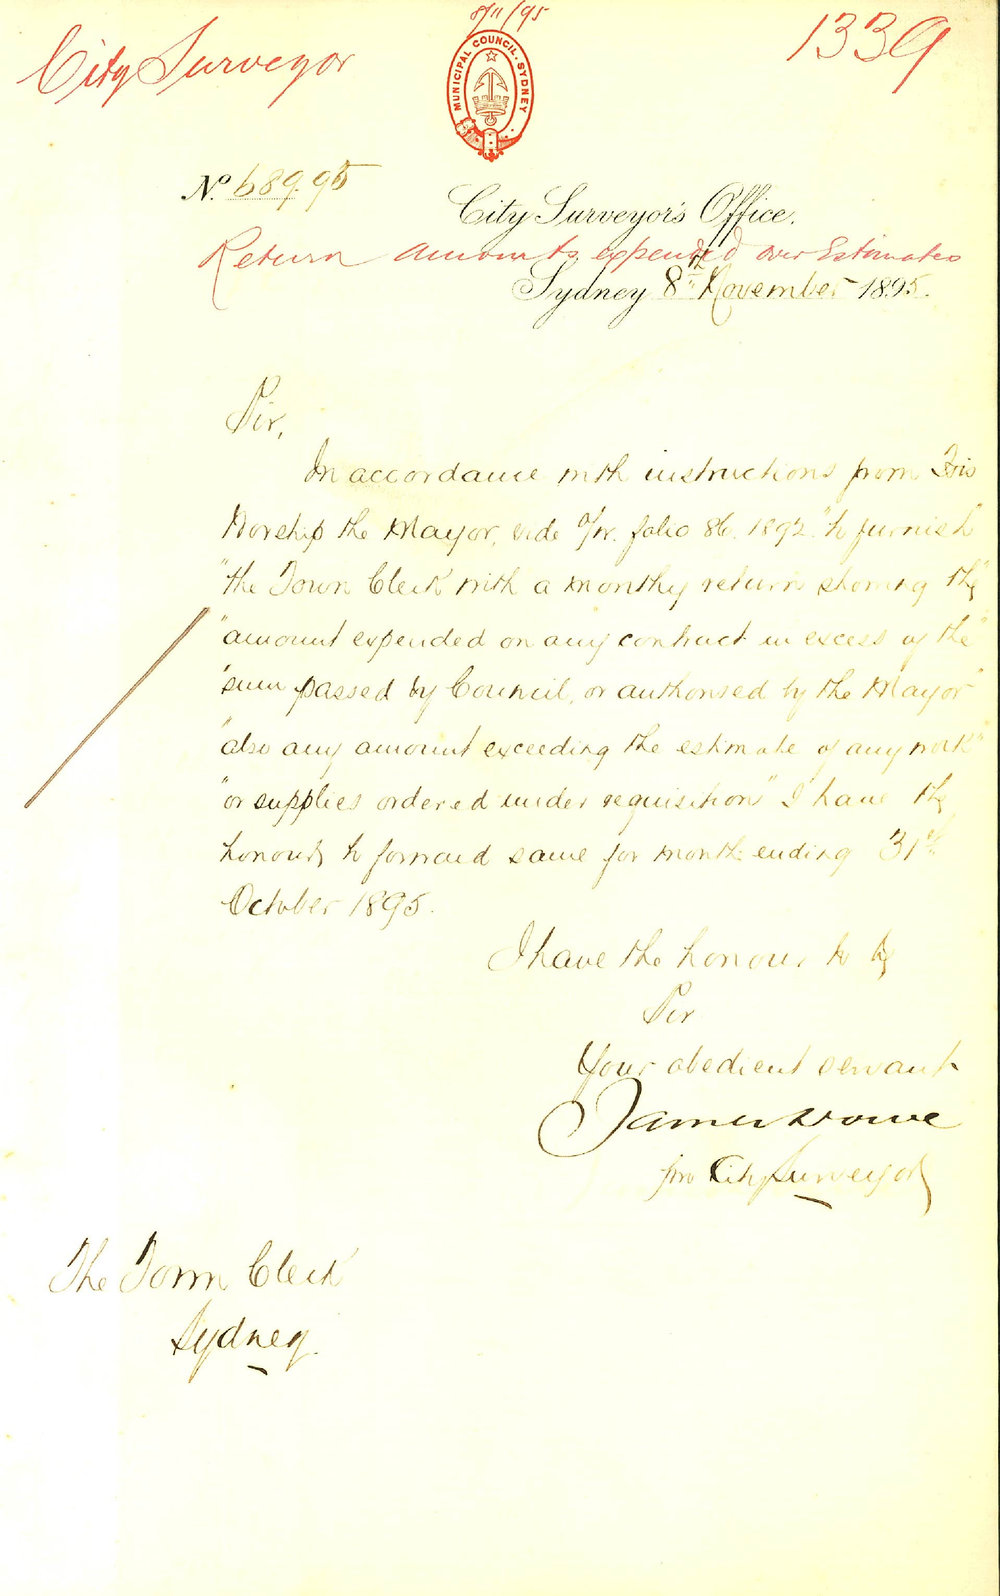 8/11/95
City Surveyor
1339
MUNICIPAL COUNCIL. SYDNEY
No. 689.95
City Surveyor's Office.
Return amounts expended over Estimates
Sydney 8th November 1895.
Sir,
In accordance with instructions from His
Worship the Mayor, vide folio 86. 1892. "to furnish"
"the Town Clerk with a monthly return showing the"
"amount expended on any contract in excess of the"
"sum passed by Council, or authorised by the Mayor"
"also any amount exceeding the estimate of any work"
"or supplies ordered under requisition" I have the
honour to forward same for month ending 31st
October 1895.
I have the honour to be
Sir
Your obedient servant
James Howe
pro City Surveyor
The Town Clerk
Sydney.